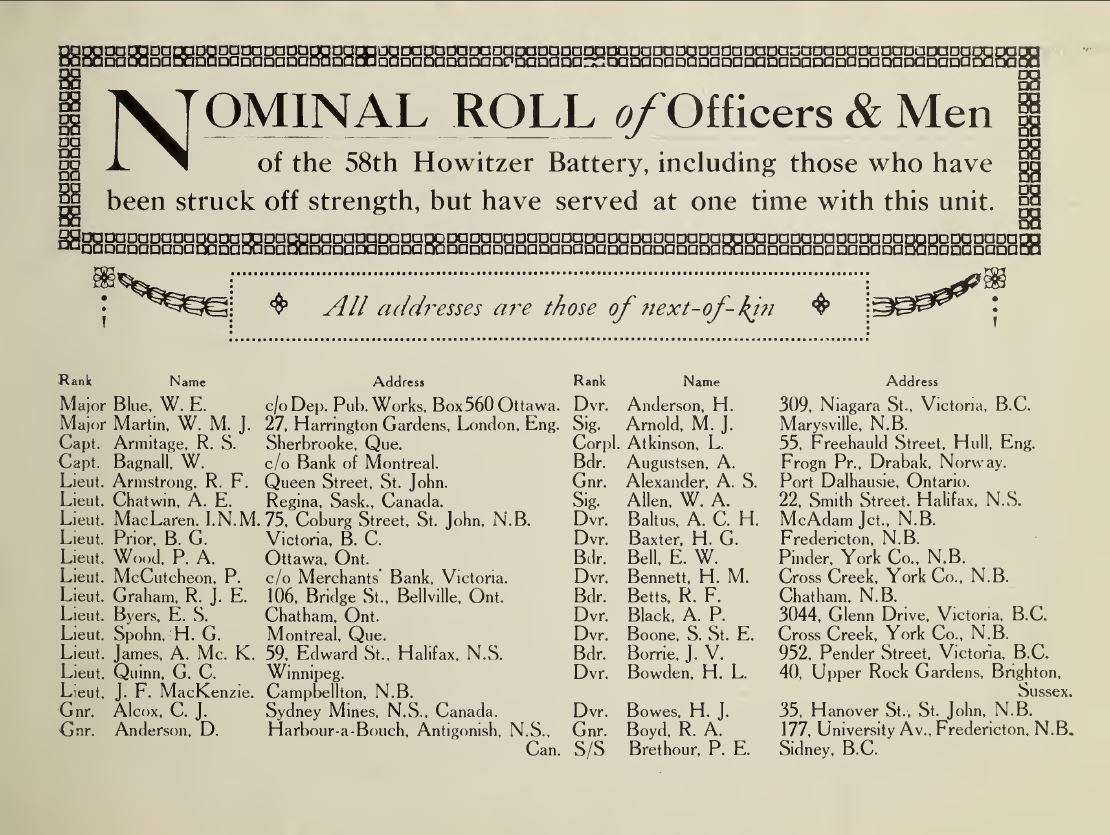 NOMINAL ROLL of Officers & Men
of the 58th Howitzer Battery, including those who have
been struck off strength, but have served at one time with this unit.
All addresses are those of next-of-kin
Rank Name Address
Major Blue, W. E. c/o Dep. Pub. Works, Box 560 Ottawa.
Major Martin, W. M. J. 27, Harrington Gardens, London, Eng.
Capt. Armitage, R. S. Sherbrooke, Que.
Capt. Bagnall, W. c/o Bank of Montreal.
Lieut. Armstrong, R. F. Queen Street, St. John.
Lieut. Chatwin, A. E. Regina, Sask., Canada.
Lieut. MacLaren. I.N.M. 75, Coburg Street, St. John, N.B.
Lieut. Prior, B. G. Victoria, B. C.
Lieut. Wood, P. A. Ottawa, Ont.
Lieut. McCutcheon, P. c/o Merchants' Bank, Victoria.
Lieut. Graham, R. J. E. 106, Bridge St., Bellville, Ont.
Lieut. Byers, E. S. Chatham, Ont.
Lieut. Spohn, H. G. Montreal, Que.
Lieut. James, A. Mc. K. 59, Edward St., Halifax, N.S.
Lieut. Quinn, G. C. Winnipeg.
Lieut. J. F. MacKenzie. Campbellton, N.B.
Gnr. Alcox, C. J. Sydney Mines, N.S., Canada.
Gnr. Anderson, D. Harbour-a-Bouch, Antigonish, N.S.,
Can.
Rank Name Address
Dvr. Anderson, H. 309, Niagara St., Victoria, B.C.
Sig. Arnold, M. J. Marysville, N.B.
Corpl. Atkinson, L. 55, Freehauld Street, Hull, Eng.
Bdr. Augustsen, A. Frogn Pr., Drabak, Norway.
Gnr. Alexander, A. S. Port Dalhausie, Ontario.
Sig. Allen, W. A. 22, Smith Street. Halifax, N.S.
Dvr. Baltus, A. C. H. McAdam Jct., N.B.
Dvr. Baxter, H. G. Fredericton, N.B.
Bdr. Bell, E. W. Pinder, York Co., N.B.
Dvr. Bennett, H. M. Cross Creek, York Co., N.B.
Bdr. Betts, R. F. Chatham, N.B.
Dvr. Black, A. P. 3044, Glenn Drive, Victoria, B.C.
Dvr. Boone, S. St. E. Cross Creek, York Co., N.B.
Bdr. Borrie, J. V. 952, Pender Street, Victoria, B.C.
Dvr. Bowden, H. L. 40, Upper Rock Gardens, Brighton,
Sussex.
Dvr. Bowes, H. J. 35, Hanover St., St. John, N.B.
Gnr. Boyd, R. A. 177, University Av., Fredericton, N.B.
S/S Brethour, P. E. Sidney, B.C.